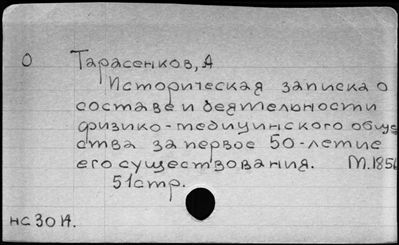 О Тарасенков, А
Историческая записка о
составе и деятельности
физико-медицинского обще
ства за первое 50-летие
его существования. М. 185
51 стр.
нс 30 14.